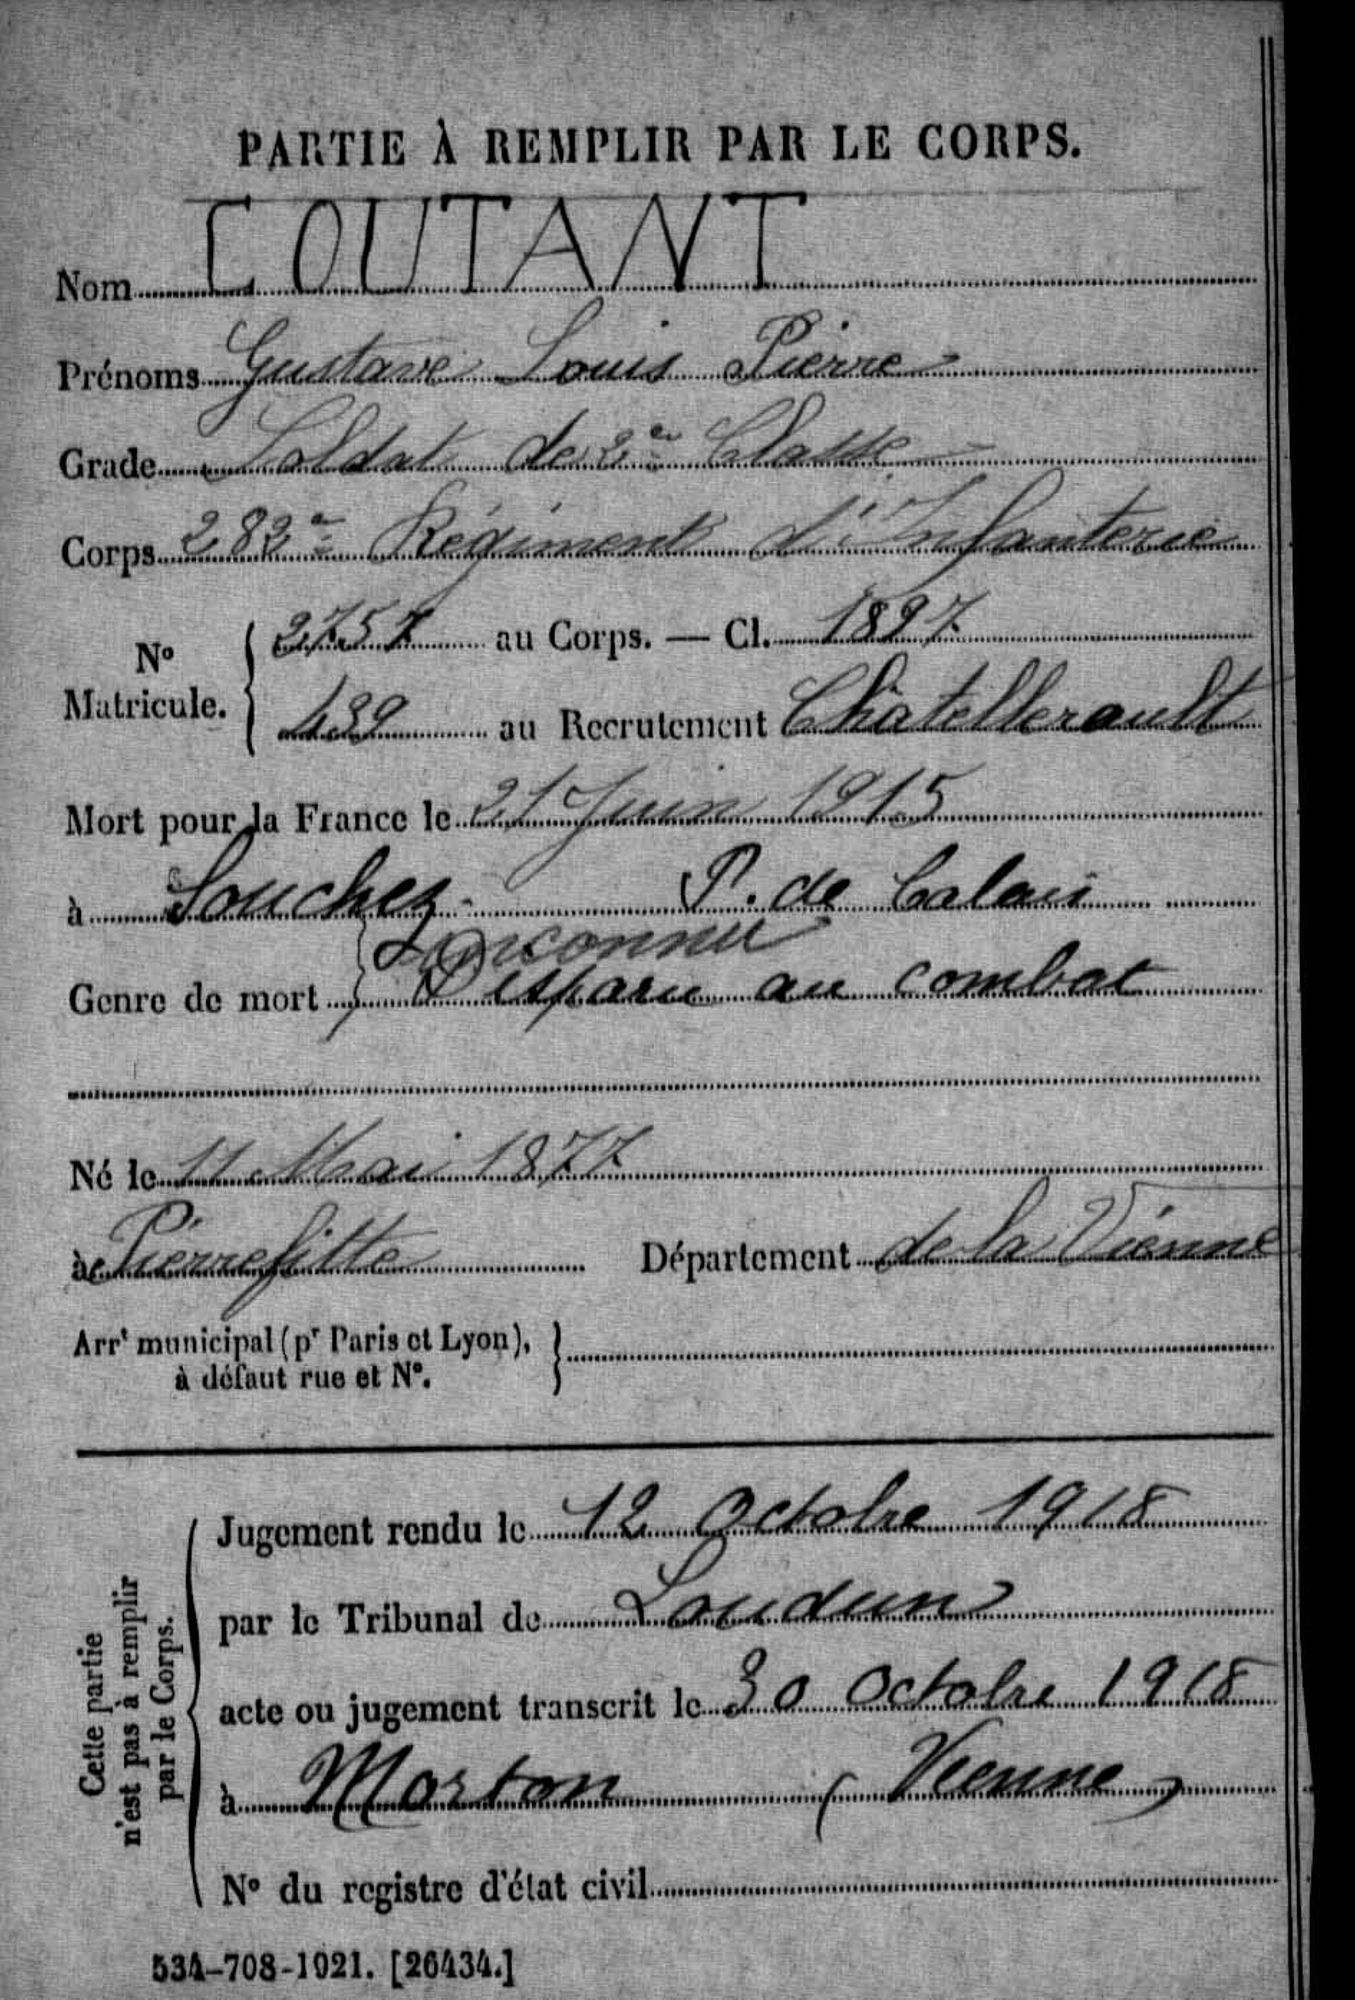 PARTIE À REMPLIR PAR LE CORPS.
Nom COUTANT
Prénoms Gustave Louis Pierre
Grade Soldat de 2e Classe
Corps 282e Régiment d'Infanterie
No Matricule. 2757 au Corps. — Cl. 1897
439 au Recrutement Châtellerault
Mort pour la France le 21 Juin 1915
à Souchez - P. de Calais
Inconnu
Genre de mort Disparu au combat
Né le 11 Mai 1877
à Pierrefitte Département de la Vienne
Arrt municipal (pr Paris et Lyon),
à défaut rue et No.
Cette partie
n'est pas à remplir
par le Corps.
Jugement rendu le 12 Octobre 1918
par le Tribunal de Loudun
acte ou jugement transcrit le 30 Octobre 1918
à Morton (Vienne)
No du registre d'état civil
534-708-1921. [26434.]